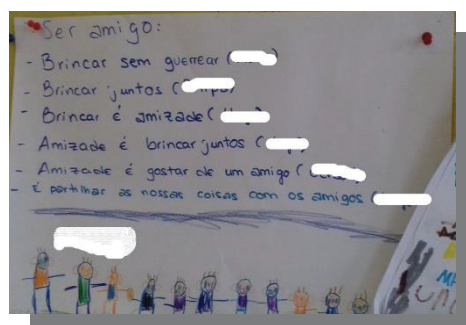 Ser amigo:
- Brincar sem guerrear (
- Brincar juntos (
- Brincar é amizade (
- Amizade é brincar juntos (
- Amizade é gostar de um amigo (
- É partilhar as nossas coisas com os amigos (